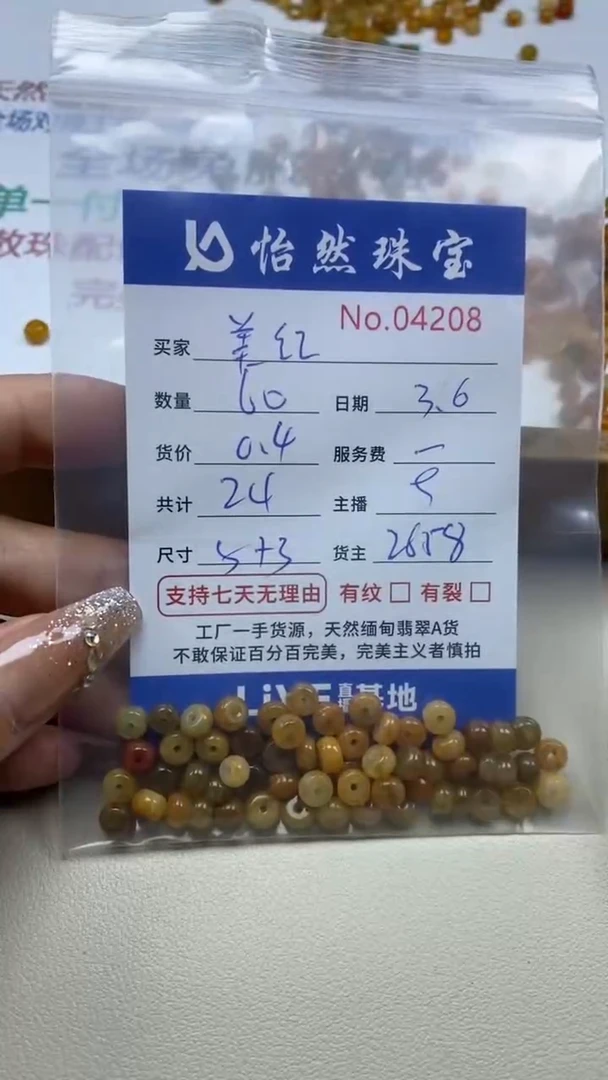 怡然珠宝
No.04208
买家 美红
数量 60 日期 3.6
货价 0.4 服务费 一
共计 24 主播
尺寸 5+3 货主 2658
支持七天无理由 有纹 □ 有裂 □
工厂一手货源，天然缅甸翡翠A货
不敢保证百分百完美，完美主义者慎拍
LiVE 直播基地